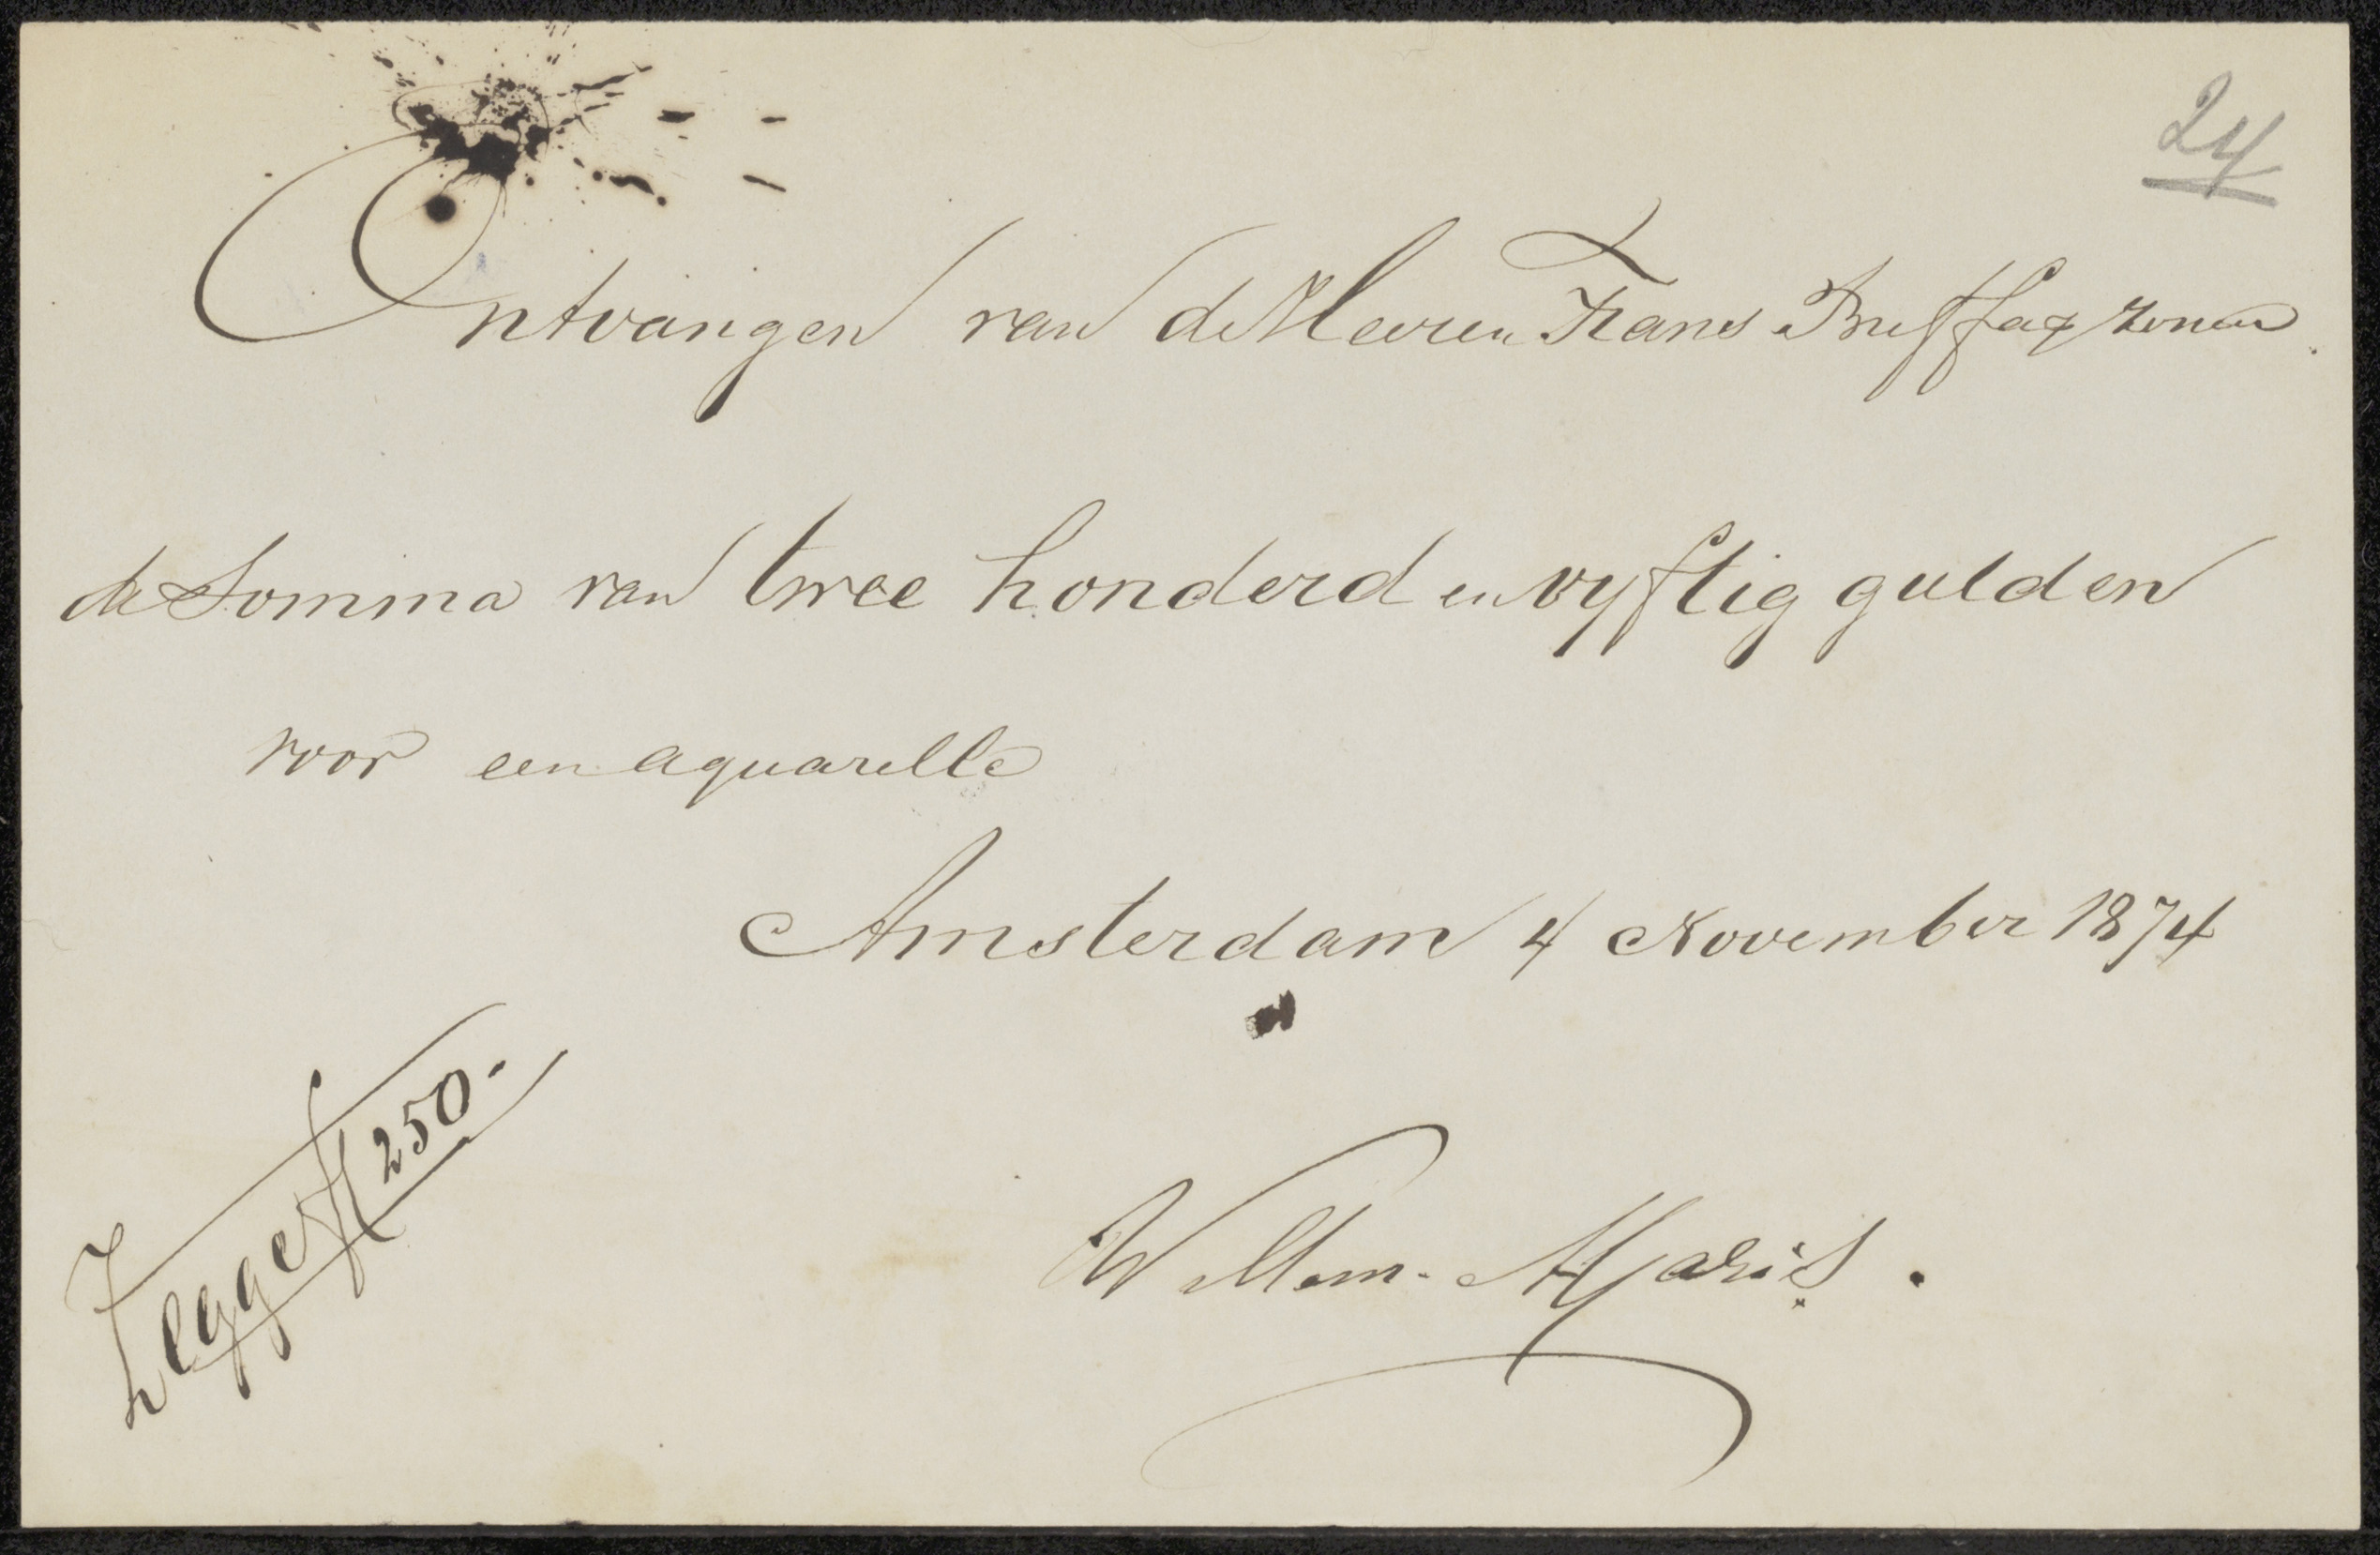 24
Ontvangen van de Heeren Frans Buffa & zonen
de Somma van twee honderd en vyftig gulden
voor een aquarelle
Amsterdam 4 November 1874
Zegge ƒ 250.
Willem Maris.